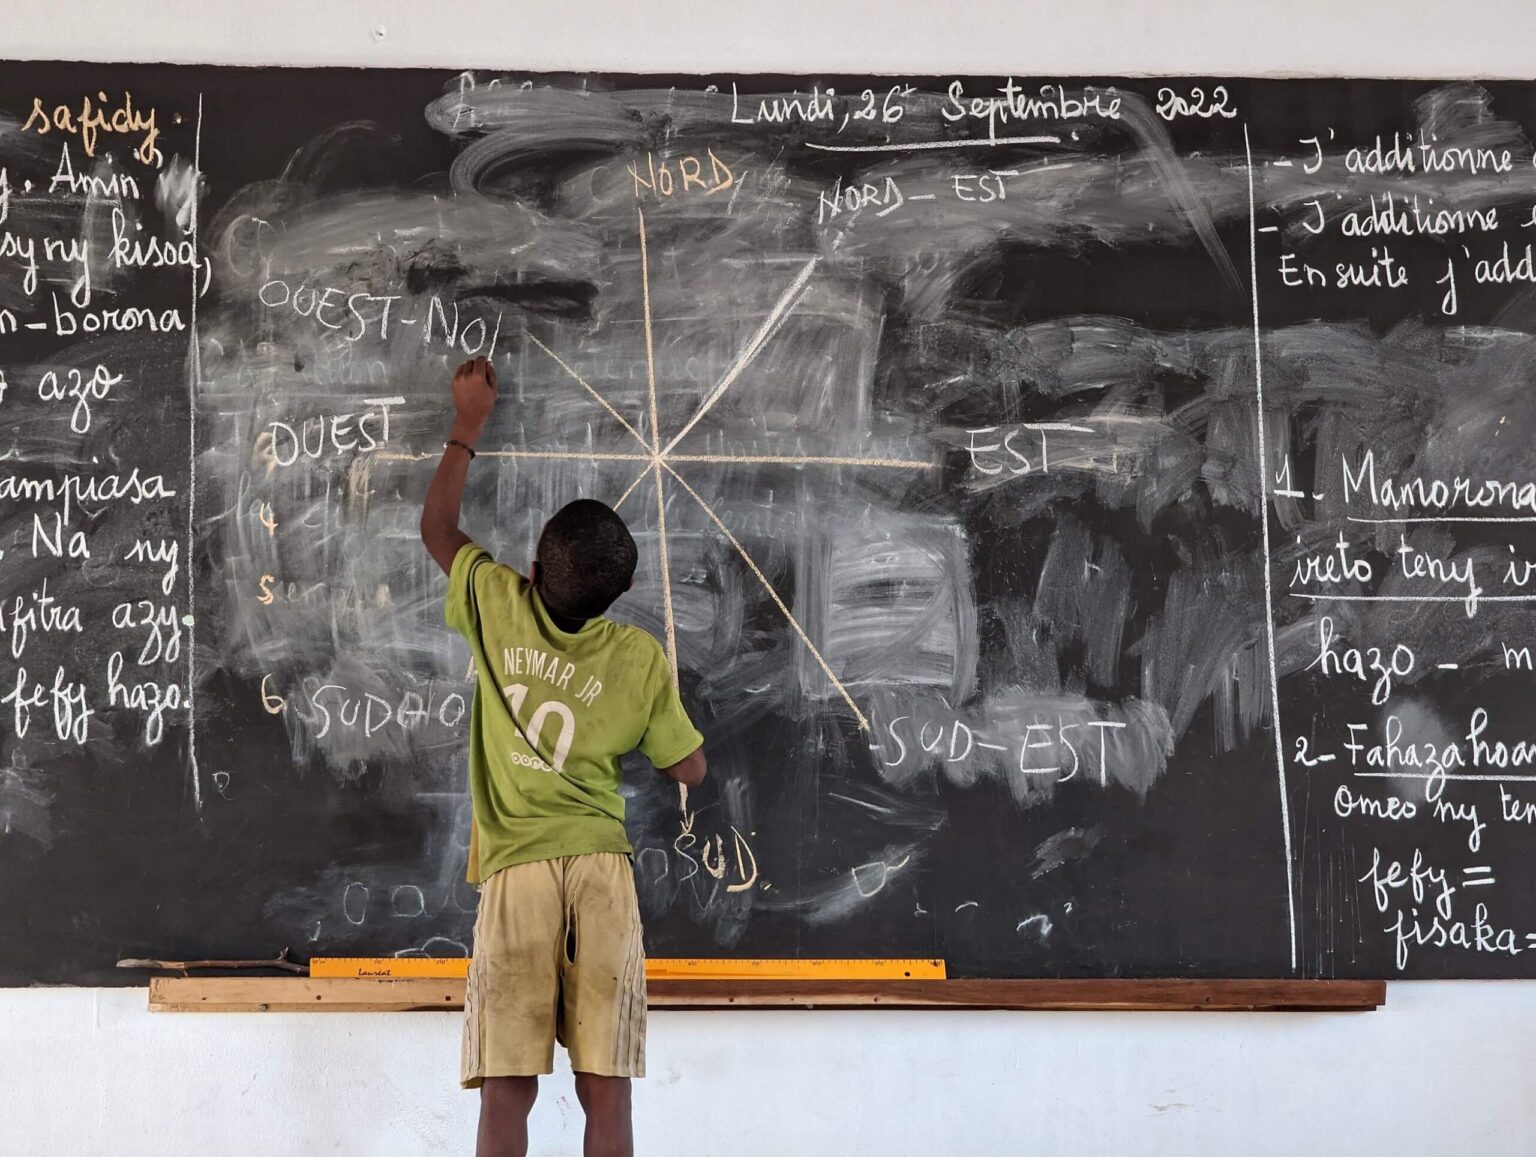 safidy.
Amin'
sy ny kisoa,
n-borona
azo
ampiasa
. Na ny
fitra azy.
fefy hazo.
Lundi, 26 Septembre 2022
NORD
NORD-EST
OUEST-NO
OUEST
EST
4
5
6
SUD-O
SUD-EST
SUD.
NEYMAR JR
10
Lauréat
- J'additionne
- J'additionne
Ensuite j'add
1- Mamorona
ireto teny
hazo - m
2- Fahazahoa
omeo ny ten
fefy =
fisaka =